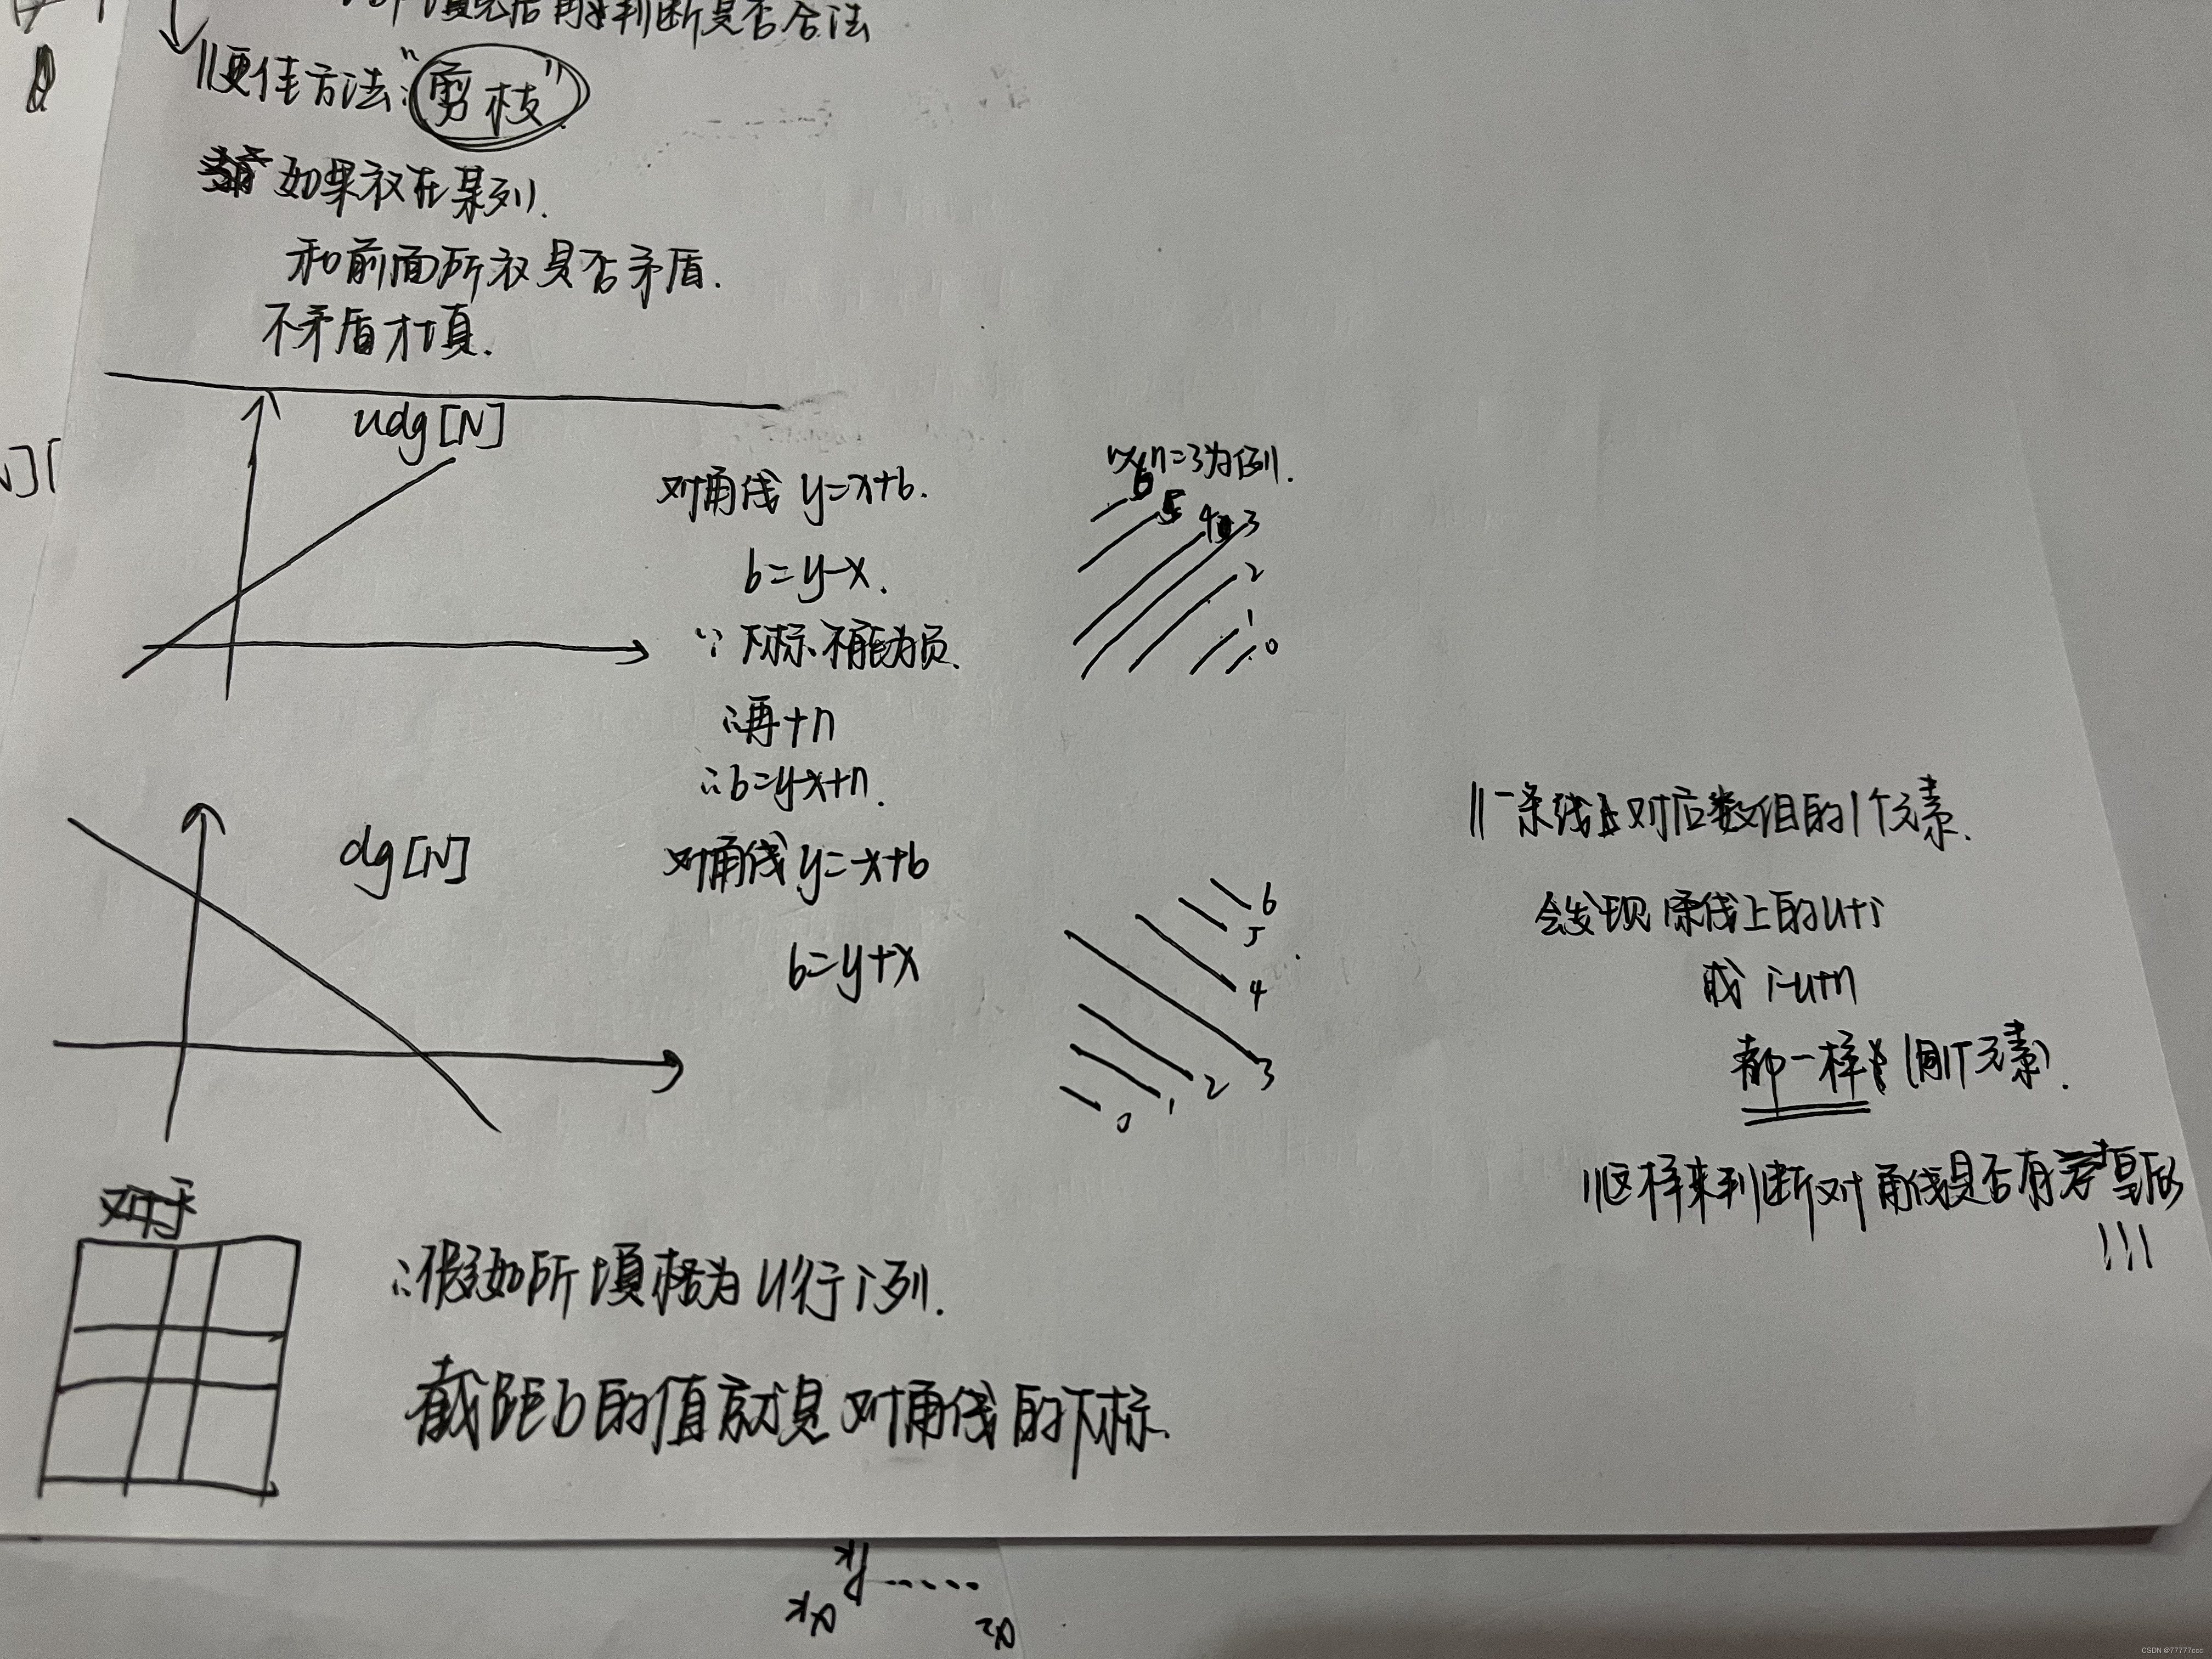 填完后再来判断是否合法
//更佳方法:"剪枝"
如果放在某列.
和前面所放是否矛盾.
不矛盾才填.
udg[N]
对角线 y=x+b.
b=y-x.
∵ 下标不能为负.
∴再+n
∴b=y-x+n.
以n=3为例.
6 5 4 3
2
1
0
dg[N]
对角线 y=-x+b
b=y+x
6
5
4
3
2
1
0
//一条线上对应数组的1个元素.
会发现 条线上的u+i
或 i-u+n
都一样 (同1个元素).
//这样来判断对角线是否有皇后
!!!
对于
∴假如所填格为u行i列.
截距b的值就是对角线的下标.
CSDN @77777ccc